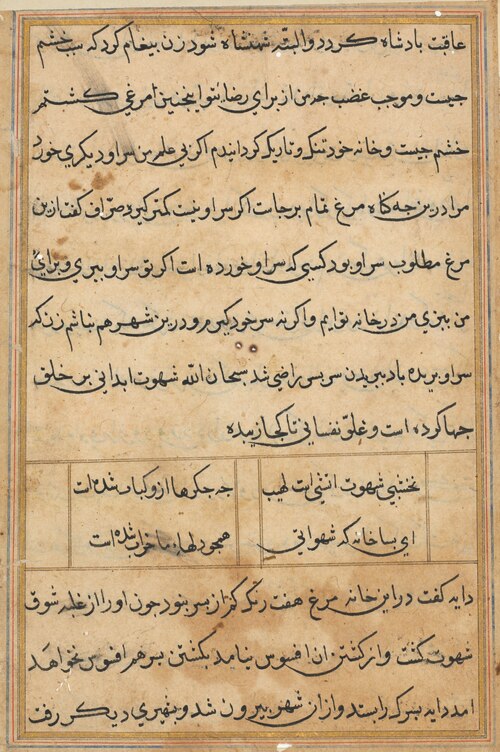 عاقبت بادشاه کردد والبته شهنشاه شود زن بیغام کرد که سبب خشم
جیست و موجب غضب جه من از برای رضاء تو اینجنین مرغی کشتم
خشم جیست و خانه خود تنک و تاریک کردانیدم اکر بی علم من سر او دیکری خورد
مرا درین جه کناه مرغ تمام برجاست اکر سر او نیست کمتر کیر صراف کفت ازین
مرغ مطلوب سر او بود کسی که سر او خورده است اکر تو سر او ببری و برای
من ببزی من در خانه تو ایم و اکرنه سر خود کیرم و درین شهر هم نباشم زن که
سر او بریده باد ببریدن سر بسر راضی شد سبحان الله شهوت ابدانی بر خلق
جها کرده است و غلو نفسانی تا کجا رسیده
نخشبی شهوت اتشی است لهیب
جه جکرها ازو کباب شده است
ای بسا خانه که شهوانی
همجو دلهاء ما خراب شده است
دایه کفت در این خانه مرغ هفت رنک کم از بسر بنود جون او را از غلبه شوق
شهوت کشت و از کشتن ان افسوس نیامد بکشتن بسر هم افسوس نخواهد
امد دایه بسرک را بستد و از ان شهر بیرون شد و بشهری دیکر رفت